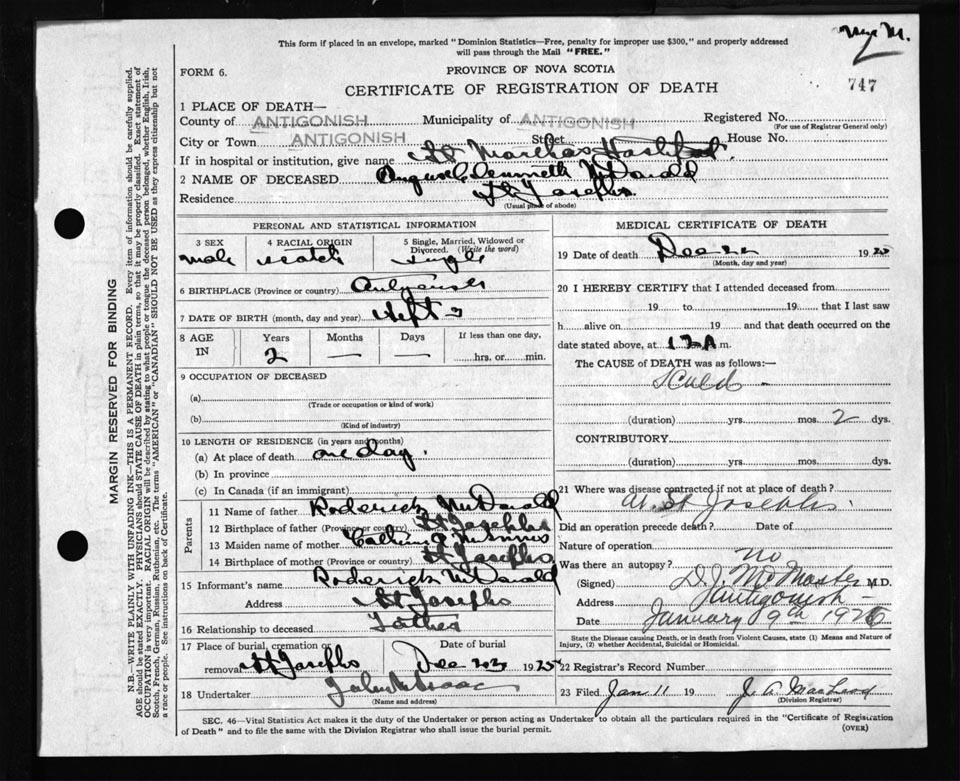 Mgr M.
This form if placed in an envelope, marked "Dominion Statistics—Free, penalty for improper use $300," and properly addressed
will pass through the Mail "FREE."
747
FORM 6.
PROVINCE OF NOVA SCOTIA
CERTIFICATE OF REGISTRATION OF DEATH
1 PLACE OF DEATH—
County of ANTIGONISH Municipality of ANTIGONISH Registered No.
(For use of Registrar General only)
City or Town ANTIGONISH Street House No.
If in hospital or institution, give name St Marthas Hospital
2 NAME OF DECEASED Angus Kenneth McDonald
Residence St Josephs
(Usual place of abode)
PERSONAL AND STATISTICAL INFORMATION
3 SEX 4 RACIAL ORIGIN 5 Single, Married, Widowed or Divorced. (Write the word)
male scotch single
6 BIRTHPLACE (Province or country) Antigonish
7 DATE OF BIRTH (month, day and year) Sept 3
8 AGE IN Years Months Days If less than one day,
2 — — hrs. or min.
9 OCCUPATION OF DECEASED
(a)
(Trade or occupation or kind of work)
(b)
(Kind of industry)
10 LENGTH OF RESIDENCE (in years and months)
(a) At place of death one day.
(b) In province
(c) In Canada (if an immigrant)
Parents
11 Name of father Roderick McDonald
12 Birthplace of father (Province or country) St Josephs
13 Maiden name of mother McInnis
14 Birthplace of mother (Province or country) St Josephs
15 Informant's name Roderick McDonald
Address St Josephs
16 Relationship to deceased Father
17 Place of burial, cremation or removal St Josephs Date of burial Dec 1925
18 Undertaker John McIsaac
(Name and address)
MEDICAL CERTIFICATE OF DEATH
19 Date of death Dec 19
(Month, day and year)
20 I HEREBY CERTIFY that I attended deceased from
19 to 19 that I last saw
h alive on 19 and that death occurred on the
date stated above, at 12 A m.
The CAUSE OF DEATH was as follows:
Scald —
(duration) yrs. mos. 2 dys.
CONTRIBUTORY
(duration) yrs. mos. dys.
21 Where was disease contracted if not at place of death?
At St Josephs.
Did an operation precede death? Date of
Nature of operation
Was there an autopsy? no
(Signed) D.J. McMaster M.D.
Address Antigonish
Date January 9th 1926
State the Disease causing Death, or in death from Violent Causes, state (1) Means and Nature of
Injury, (2) whether Accidental, Suicidal or Homicidal.
22 Registrar's Record Number
23 Filed Jan 11 19 J. A. MacLeod
(Division Registrar)
SEC. 46—Vital Statistics Act makes it the duty of the Undertaker or person acting as Undertaker to obtain all the particulars required in the "Certificate of Registration
of Death" and to file the same with the Division Registrar who shall issue the burial permit.
(OVER)
MARGIN RESERVED FOR BINDING
N.B.—WRITE PLAINLY WITH UNFADING INK—THIS IS A PERMANENT RECORD. Every item of information should be carefully supplied.
AGE should be stated EXACTLY. PHYSICIANS should STATE CAUSE OF DEATH in plain terms, so that it may be properly classified. Exact statement of
OCCUPATION is very important. RACIAL ORIGIN will be described by stating to what people or tongue the deceased person belonged, whether English, Irish,
Scotch, French, German, Russian, Ruthenian, etc. The terms "AMERICAN" or "CANADIAN" SHOULD NOT BE USED as they express citizenship but not
a race or people. See instructions on back of Certificate.